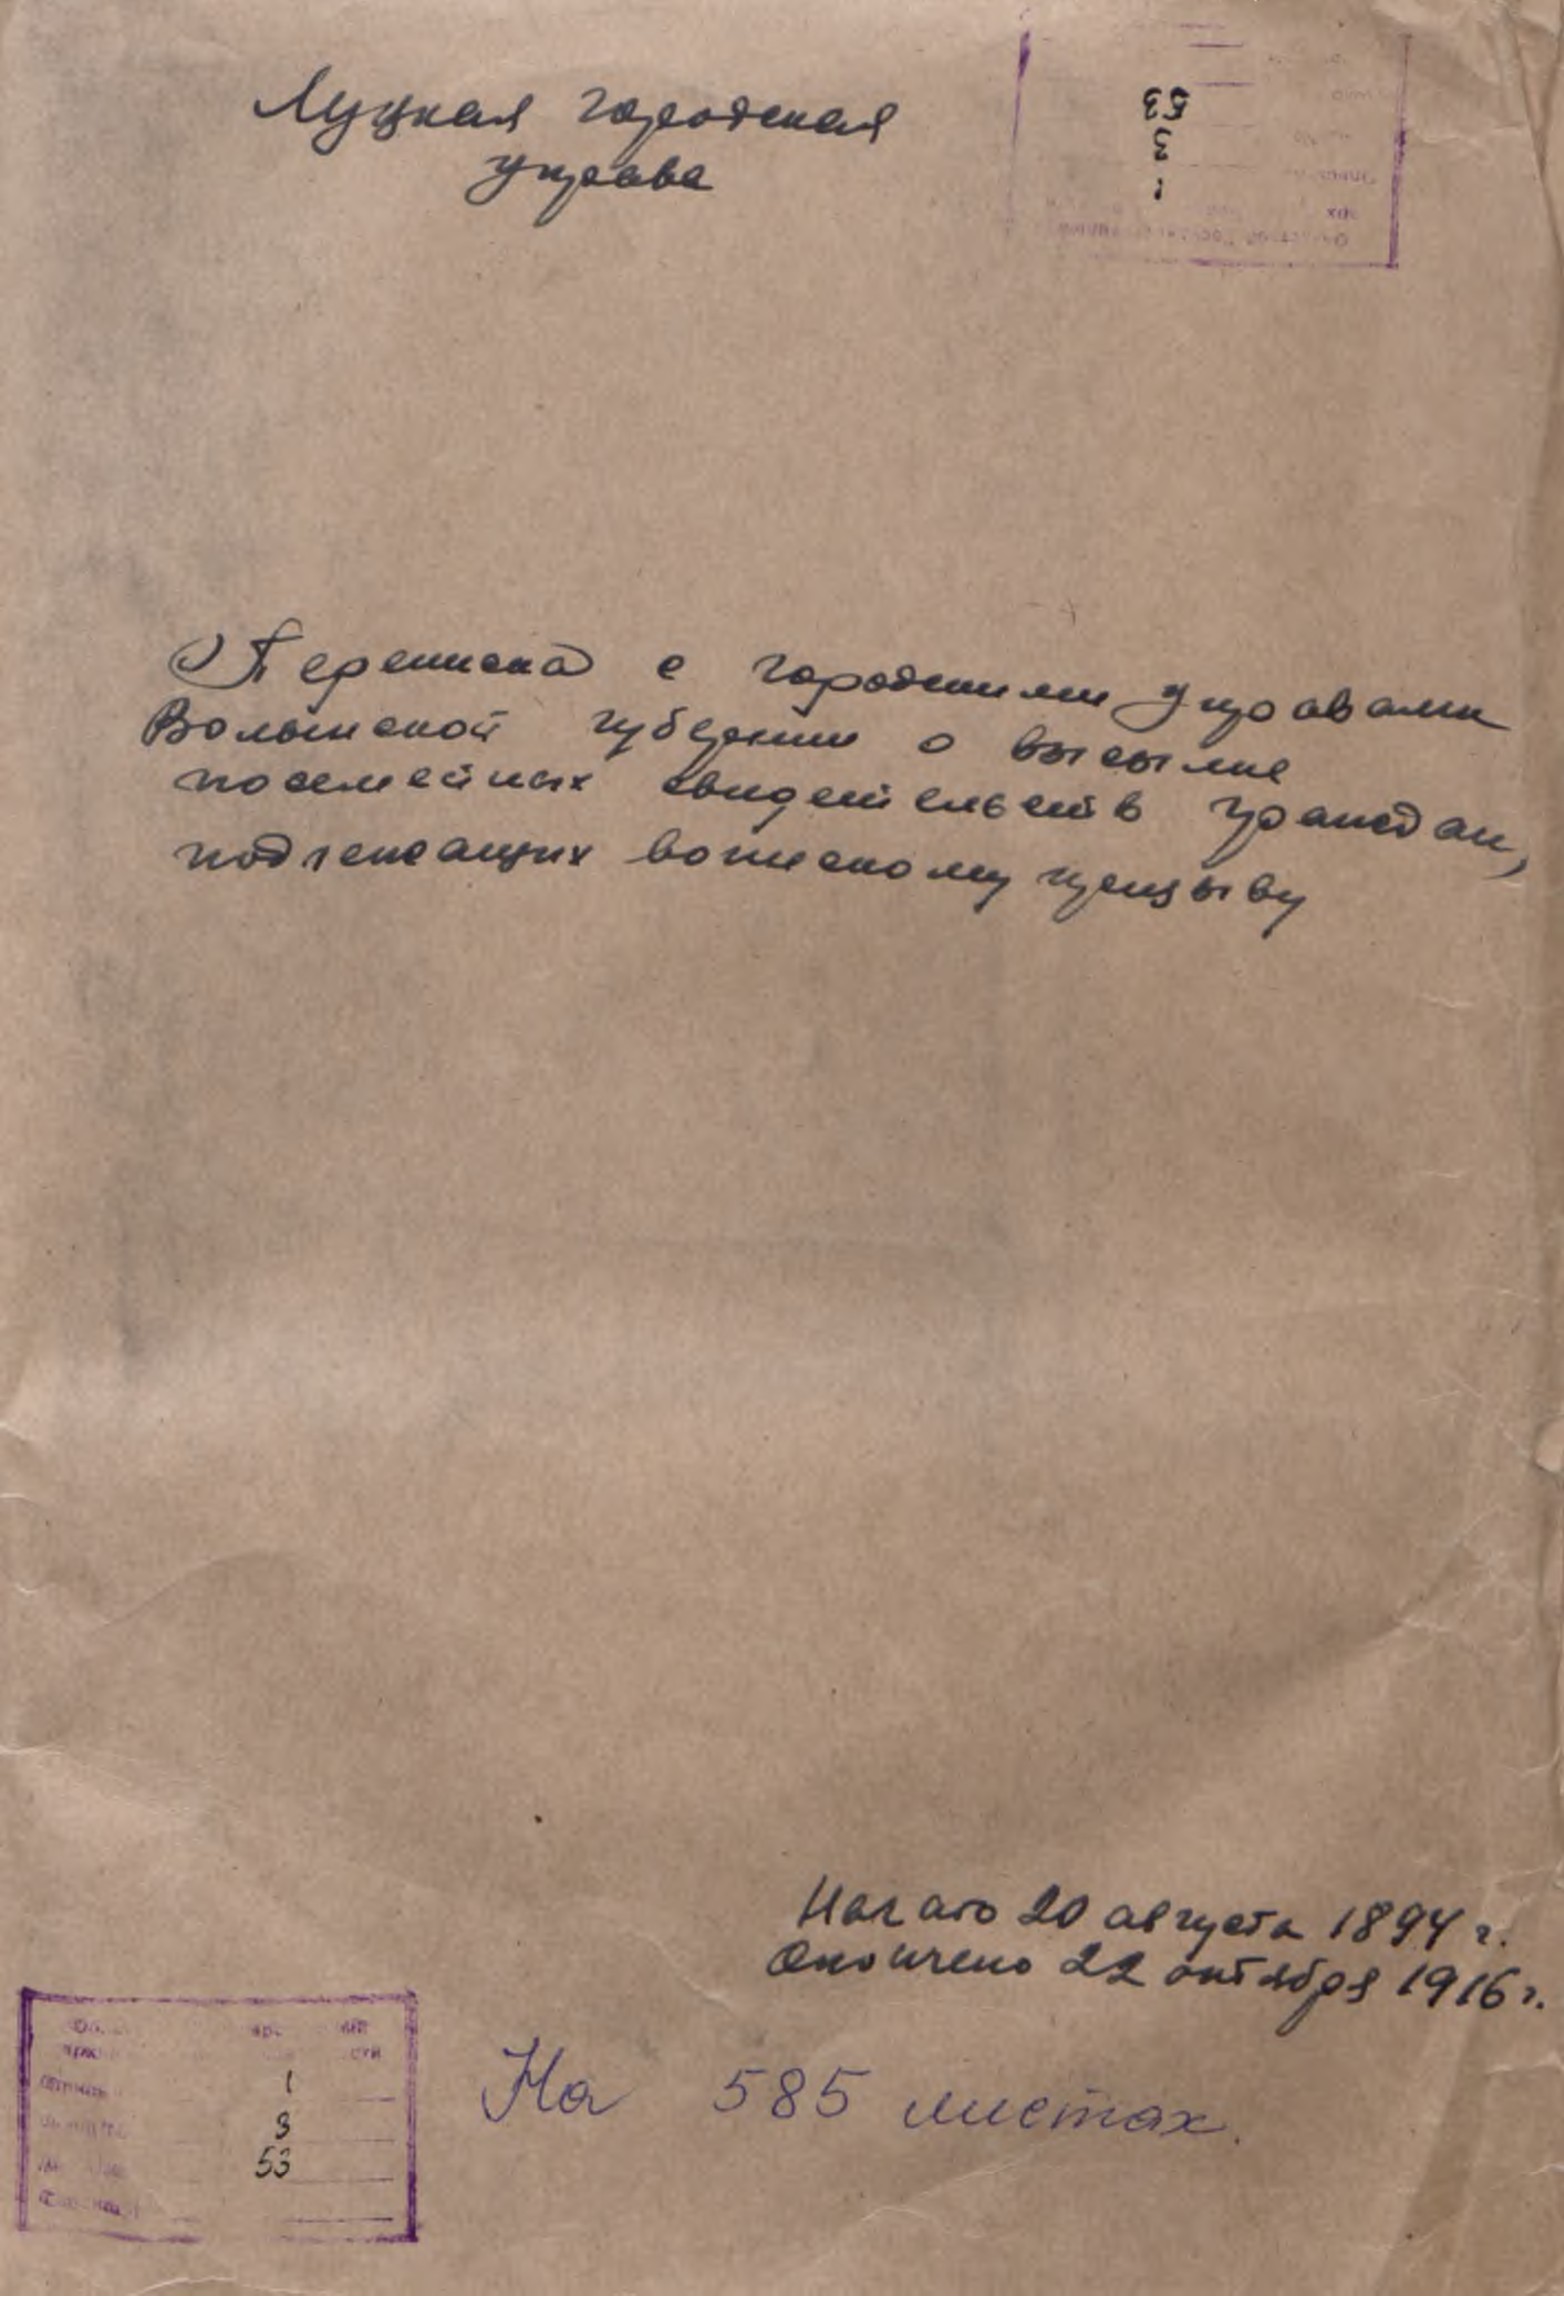 Луцкая городская
управа
53
3
1
Переписка с городскими управами
Волынской губернии о высылке
посемейных свидетельств граждан,
подлежащих воинскому призыву
Начато 20 августа 1894 г.
Окончено 22 октября 1916 г.
На 585 листах.
1
3
53